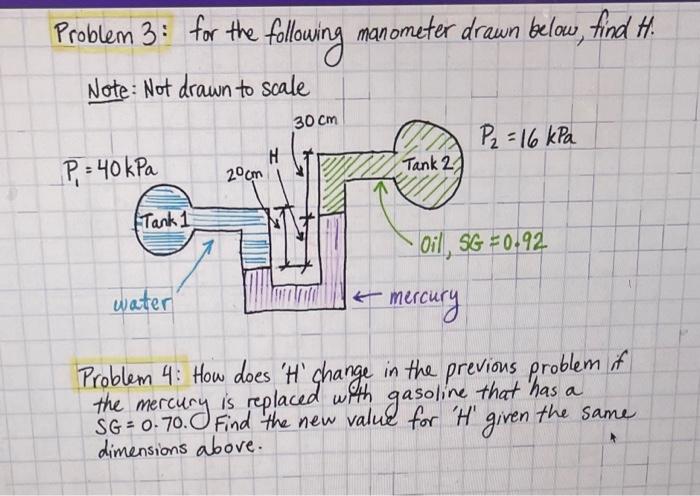 Problem 3: for the following manometer drawn below, find H.
Note: Not drawn to scale
30 cm
P₂ = 16 kPa
H
P₁ = 40 kPa
20cm
Tank 2
Tank 1
Oil, SG = 0.92
water
mercury
Problem 4: How does 'H' change in the previous problem if
the mercury is replaced with gasoline that has a
SG = 0.70. Find the new value for 'H' given the same
dimensions above.